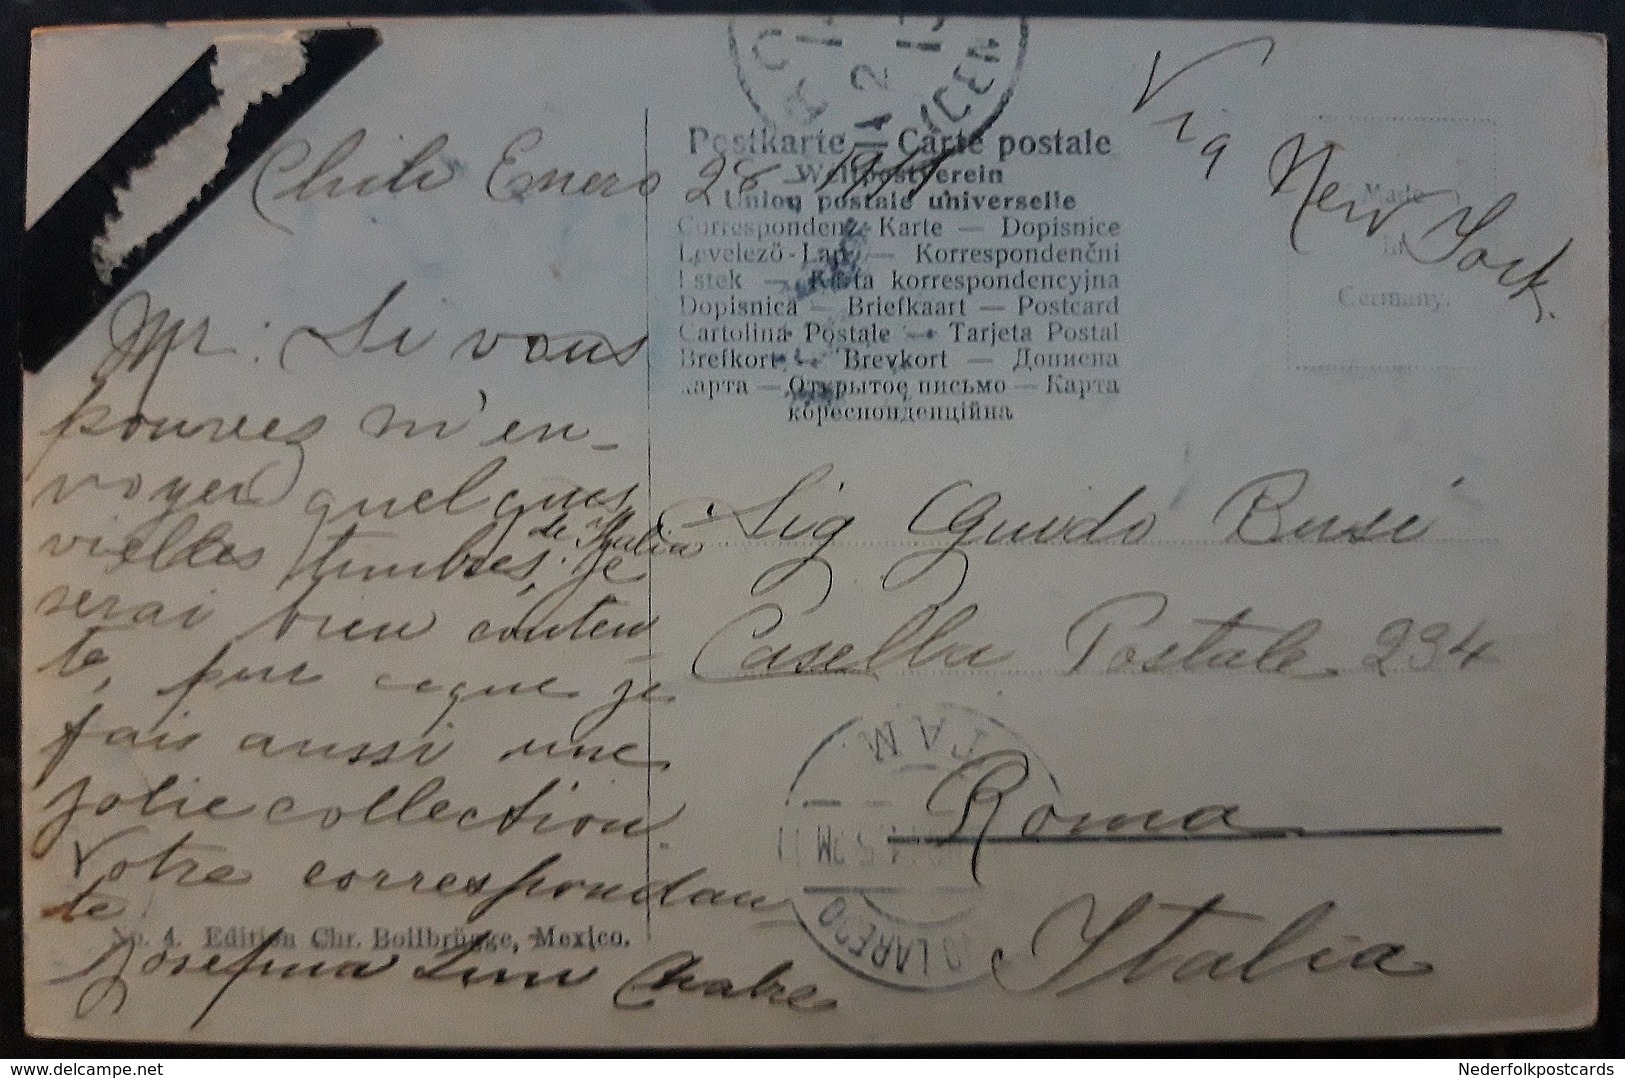 Chili Enero 28 1911
Via
New York.
Postkarte — Carte postale
Weltpostverein
Union postale universelle
Correspondenz-Karte — Dopisnice
Levelező-Lap — Korrespondenční
Lístek — Karta korrespondencyjna
Dopisnica — Briefkaart — Postcard
Cartolina Postale — Tarjeta Postal
Brefkort — Brevkort — Дописна
карта — Открытое письмо — Карта
кореспонденційна
Made
in
Germany.
Mr: Si vous
pouves m'en-
voyer quelques
vielles timbres, de Italia je
serai bien conten
te, pur ceque je
fais aussi une
jolie collection.
Votre correspondan
te
Josefina
Sig Guido Busi
Casella Postale 234
Roma
Italia
LAREDO
No. 4. Edition Chr. Bollbrügge, Mexico.
delcampe.net
Nederfolkpostcards